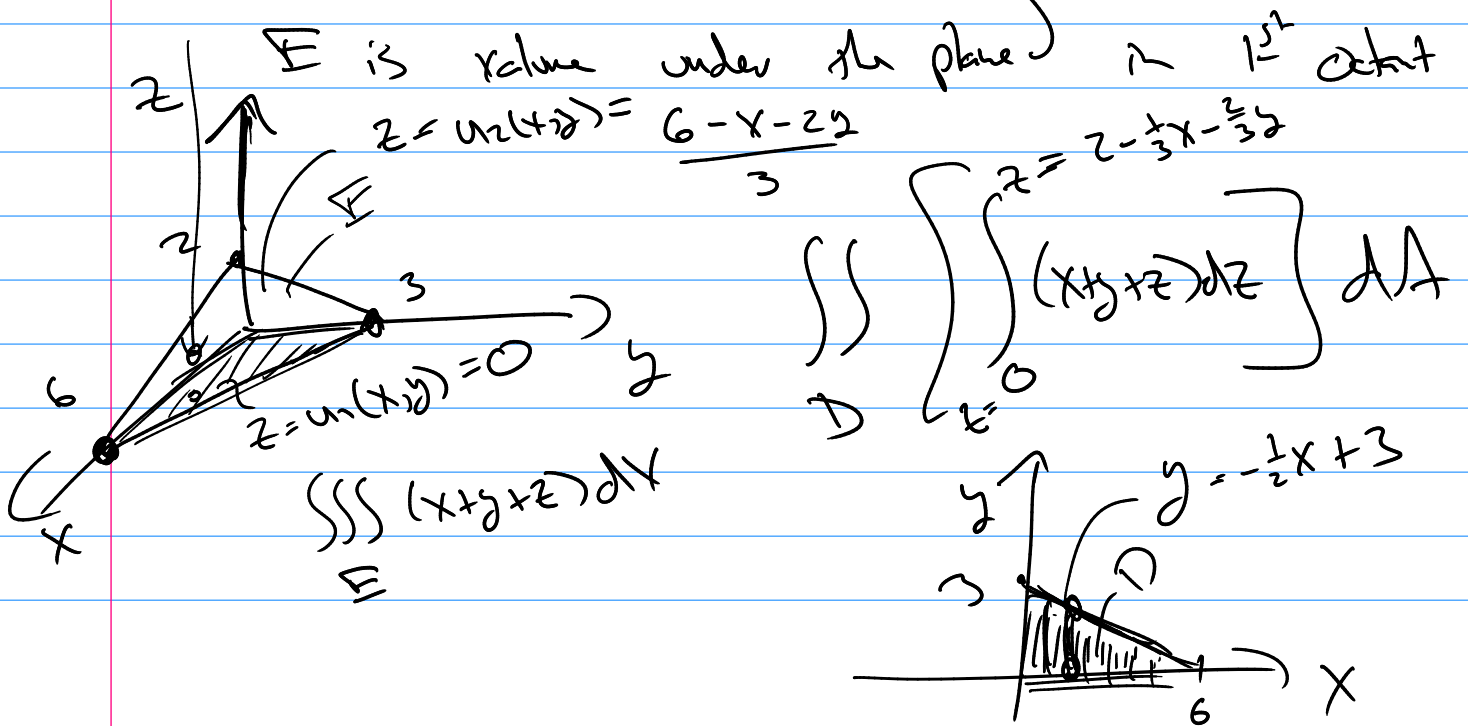 E is volume under the plane in 1st octant
z
z = u₂(x,y) = (6 - x - 2y)/3
E
2
3
6
y
x
z = u₁(x,y) = 0
∬_D [ ∫_{z=0}^{z = 2 - 1/3 x - 2/3 y} (x+y+z) dz ] dA
∭_E (x+y+z) dV
y = -1/2 x + 3
y
3
D
6
x